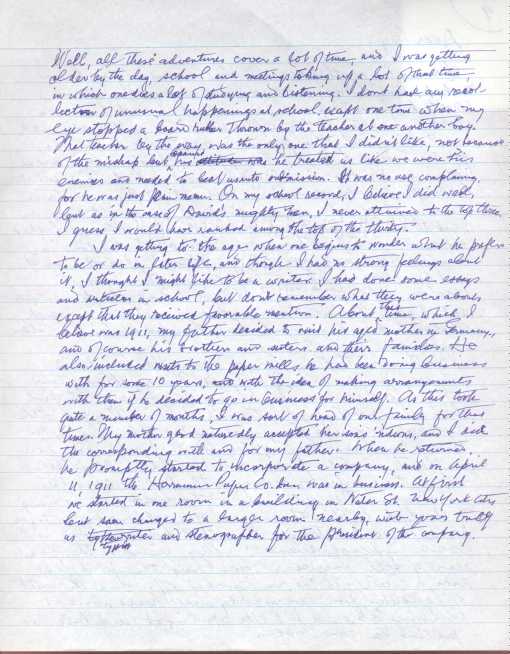 Well, all these adventures cover a lot of time, and I was getting
older by the day, school and meetings taking up a lot of that time,
in which one does a lot of studying and listening. I don't had any recol-
lection of unusual happenings at school, exept one time when my
eye stopped a board rubber thrown by the teacher at one another boy.
That teacher by the way, was the only one that I didn't like, not because
of the mishap but because he treated us like we were his
enemies and needed to beat us into submission. It was no use complaining,
for he was just plain mean. On my school record, I believe I did well,
but as in the case of David's mighty men, I never attained to the top three.
I guess I would have ranked among the top of the thirty.
I was getting to the age when one begins to wonder what he prefers
to be or do in later life, and though I had no strong feelings about
it, I thought I might like to be a writer. I had done some essays
and articles in school, but don't remember what they were about,
except that they received favorable mention. About this time, which I
believe was 1911, my father decided to visit his aged mother in Germany,
and of course his brothers and sisters and their families. He
also included visits to the paper mills he had been doing business
with for some 10 years, and with the idea of making arrangements
with them if he decided to go in business for himself. As this took
quite a number of months, I was sort of head of our family for that
time. My mother good naturedly accepted her son's and I did
the corresponding with and for my father. When he returned
he promptly started to incorporate a company, and on April
11, 1911 the Paper Co. Inc. was in business. At first
we started in one room in a building in Water St. New York City
but soon changed to a larger room nearby, with yours truly
as typist and stenographer for the president of the company.